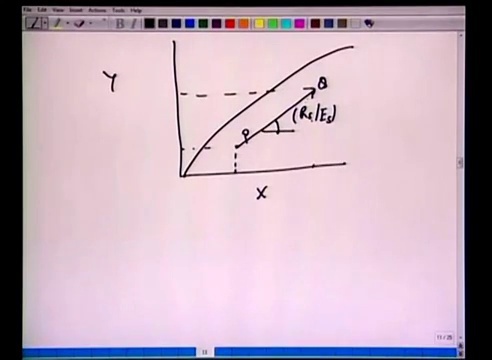 File Edit View Insert Actions Tools Help
B
Y
Q
P
(Rs/Es)
X
13
11/25